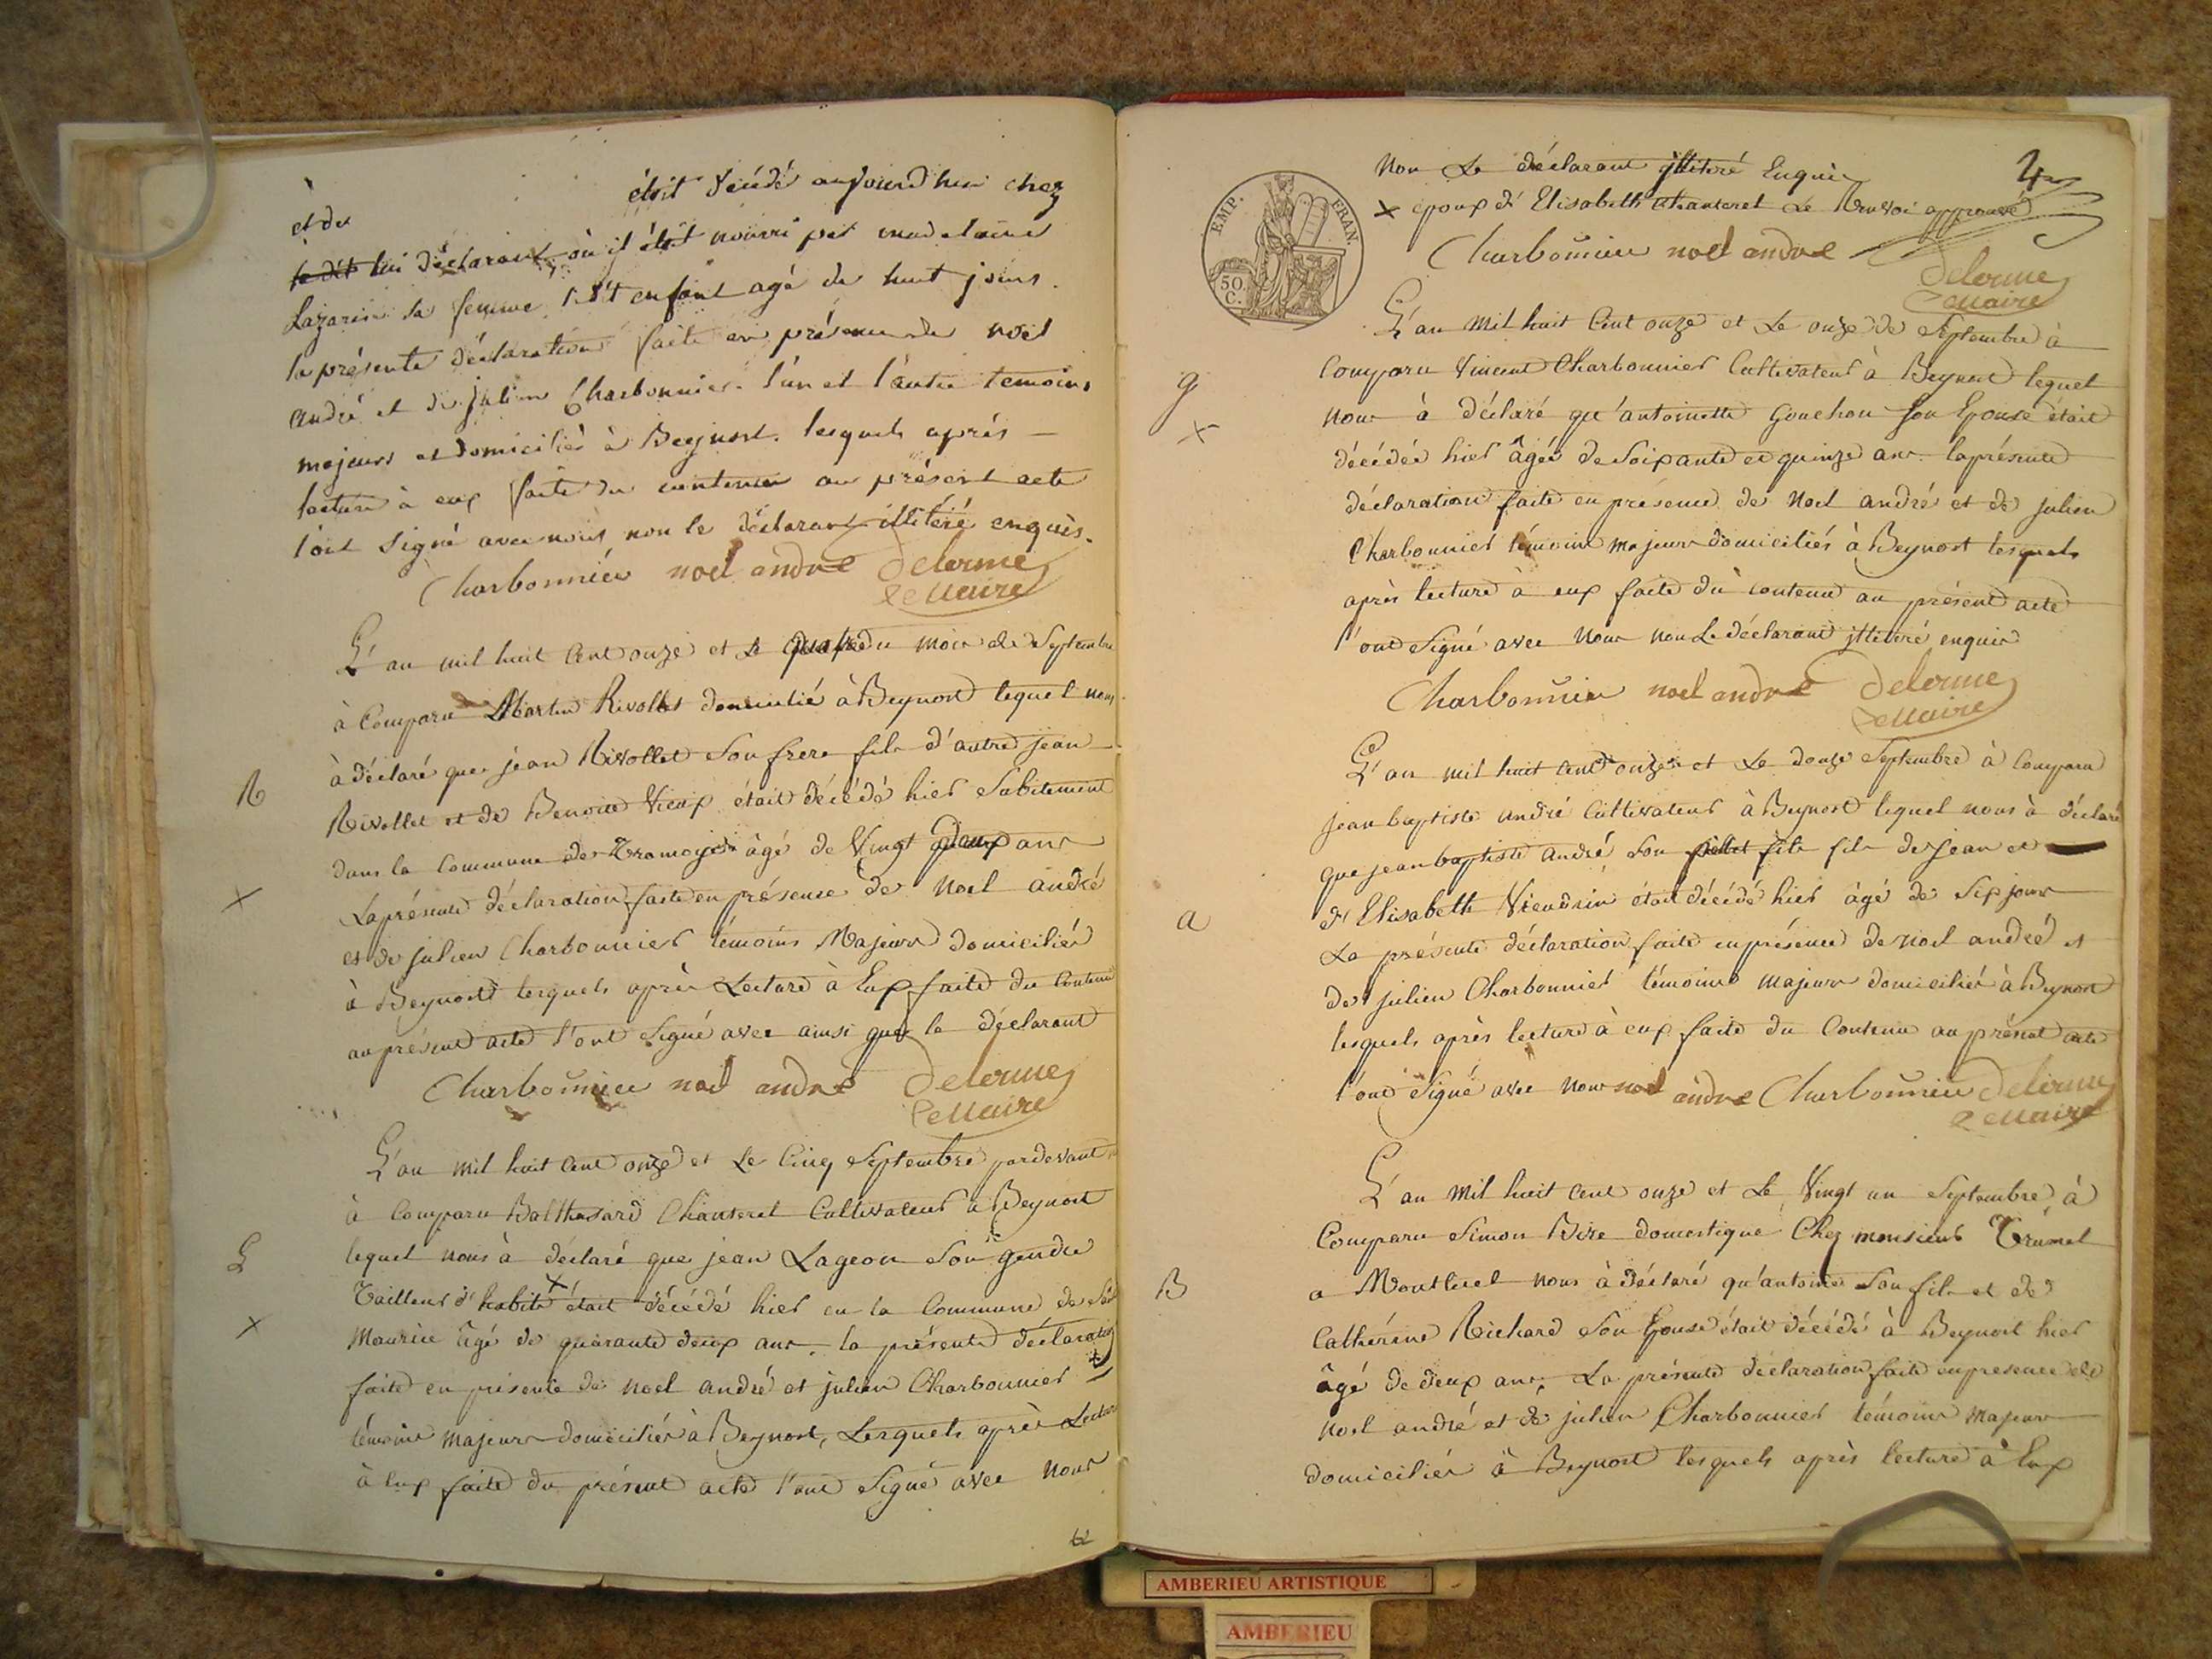 étoit décédé aujourd'hui chez
et de
lui déclarant, où il étoit nourri par madelaine
Lazarin sa femme, enfant agé de huit jours.
la présente déclaration faite en présence de noel
andré et de julien Charbonnier l'un et l'autre temoins
majeurs et domiciliés à Beynost. lesquels après
lecture à eux faite du contenu au présent acte
l'ont signé avec nous non le déclarant illitéré enquis.
Charbonnier noel andre Delorme
Le Maire
L'an mil huit Cent onze et Le quatre du mois de Septembre
à Comparu Martin Rivollet domicilié à Beynost lequel nous
à déclaré que jean Rivollet Son frere fils d'autre jean
R
Rivollet et de Benoite Vieux était décédé hier Subitement
dans la Commune de Tramoye âgé de Vingt deux ans
x
La présente déclaration faite en présence de Noel andré
et de julien Charbonnier témoins Majeurs domiciliés
à Beynost lesquels après Lecture à Eux faite du Contenu
au présent acte l'ont Signé avec ainsi que le déclarant
Charbonnier noel andre Delorme
Le Maire
L'an mil huit Cent onze et Le Cinq Septembre pardevant
à Comparu Balthasard Chanteret Cultivateur à Beynost
L
lequel nous à déclaré que jean Lageon Son gendre
Tailleur d'habits x était décédé hier en la Commune de St
x
Maurice âgé de quarante deux ans. la présente déclaration
faite en présence de noel andré et julien Charbonnier
témoins majeurs domiciliés à Beynost, Lesquels après Lecture
à Eux faite du présent acte l'ont Signé avec Nous
62
Non Le déclarant jlliteré Enquis
4
x époux d'Elisabeth Chanteret Le Renvoi approuvé
EMP. FRAN.
50 C.
Charbonnier noel andre
Delorme
Le Maire
L'an Mil huit Cent onze et Le onze de Septembre à
Comparu Vincent Charbonnier Cultivateur à Beynost lequel
g
Nous à déclaré qu'antoinette Gouchon Son Epouse était
x
décédée hier âgée de Soixante et quinze ans. la présente
déclaration faite en présence de Noel andré et de julien
Charbonnier témoins majeurs domiciliés à Beynost lesquels
après lecture à eux faite du contenu au présent acte
l'ont Signé avec Nous non Le déclarant jlliteré enquis
Charbonnier noel andre Delorme
Le Maire
L'an mil huit Cent onze et Le douze Septembre à Comparu
jean baptiste andré Cultivateur à Beynost lequel nous à déclaré
que jean baptiste andré Son fils fils de Jean et
a
d'Elisabeth Viendrin était décédé hier âgé de Six jours
La présente déclaration faite en présence de noel andré et
de julien Charbonnier témoins majeurs domiciliés à Beynost
lesquels après lecture à eux faite du Contenu au présent acte
l'ont Signé avec Nous noel andre Charbonnier Delorme
Le Maire
L'an Mil huit Cent onze et Le Vingt un Septembre à
Comparu Simon Bire domestique Chez monsieur Trumel
B
a Montluel nous à déclaré qu'antoine Son fils et de
Cathérine Richard Son Epouse était décédé à Beynost hier
âgé de deux ans, La présente déclaration faite en presence de
Noel andré et de julien Charbonnier témoins majeurs
domiciliés à Beynost lesquels après lecture à Eux
AMBERIEU ARTISTIQUE
AMBERIEU